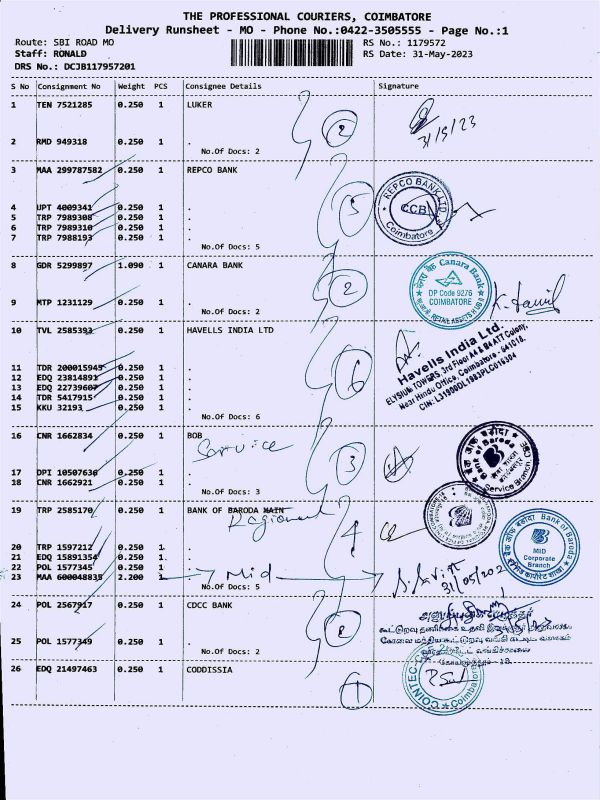 THE PROFESSIONAL COURIERS, COIMBATORE
Delivery Runsheet - MO - Phone No.:0422-3505555 - Page No.:1
Route: SBI ROAD MO RS No.: 1179572
Staff: RONALD RS Date: 31-May-2023
DRS No.: DCJB117957201
S No Consignment No Weight PCS Consignee Details Signature
1 TEN 7521285 0.250 1 LUKER
2
31/5/23
2 RMD 949318 0.250 1 .
No.Of Docs: 2
3 MAA 299787582 0.250 1 REPCO BANK
REPCO BANK LTD.
CCB
Coimbatore
4 UPT 4009341 0.250 1 .
5 TRP 7989308 0.250 1 .
5
6 TRP 7989310 0.250 1 .
7 TRP 7988193 0.250 1 .
No.Of Docs: 5
8 GDR 5299897 1.090 1 CANARA BANK
केनरा बैंक Canara Bank
DP Code 9276
COIMBATORE
RETAIL ASSETS HUB
2
9 MTP 1231129 0.250 1 .
No.Of Docs: 2
10 TVL 2585393 0.250 1 HAVELLS INDIA LTD
Havells India Ltd.
ELYSIUM TOWERS, 3rd Floor A4 & B4 ATT Colony,
Near Hindu Office, Coimbatore - 641018.
CIN: L31900DL1983PLC016304
11 TDR 200015945 0.250 1 .
12 EDQ 23814891 0.250 1 .
6
13 EDQ 22739607 0.250 1 .
14 TDR 5417915 0.250 1 .
15 KKU 32193 0.250 1 .
No.Of Docs: 6
16 CNR 1662834 0.250 1 BOB
Service
3
बैंक ऑफ़ बड़ौदा
Bank of Baroda
Service Branch
17 DPI 10507636 0.250 1 .
18 CNR 1662921 0.250 1 .
No.Of Docs: 3
19 TRP 2585170 0.250 1 BANK OF BARODA MAIN
Regional
4
बैंक ऑफ़ बड़ौदा Bank of Baroda
MID
Corporate
Branch
20 TRP 1597212 0.250 1 .
21 EDQ 15891354 0.250 1 .
22 POL 1577345 0.250 1 .
23 MAA 600048835 2.200 1
Mid
31/05/202
No.Of Docs: 5
24 POL 2567917 0.250 1 CDCC BANK
2
25 POL 1577349 0.250 1 .
No.Of Docs: 2
26 EDQ 21497463 0.250 1 CODDISSIA
1
Coimbatore